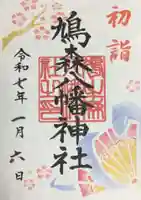 初詣
鳩森八幡神社
令和七年一月六日